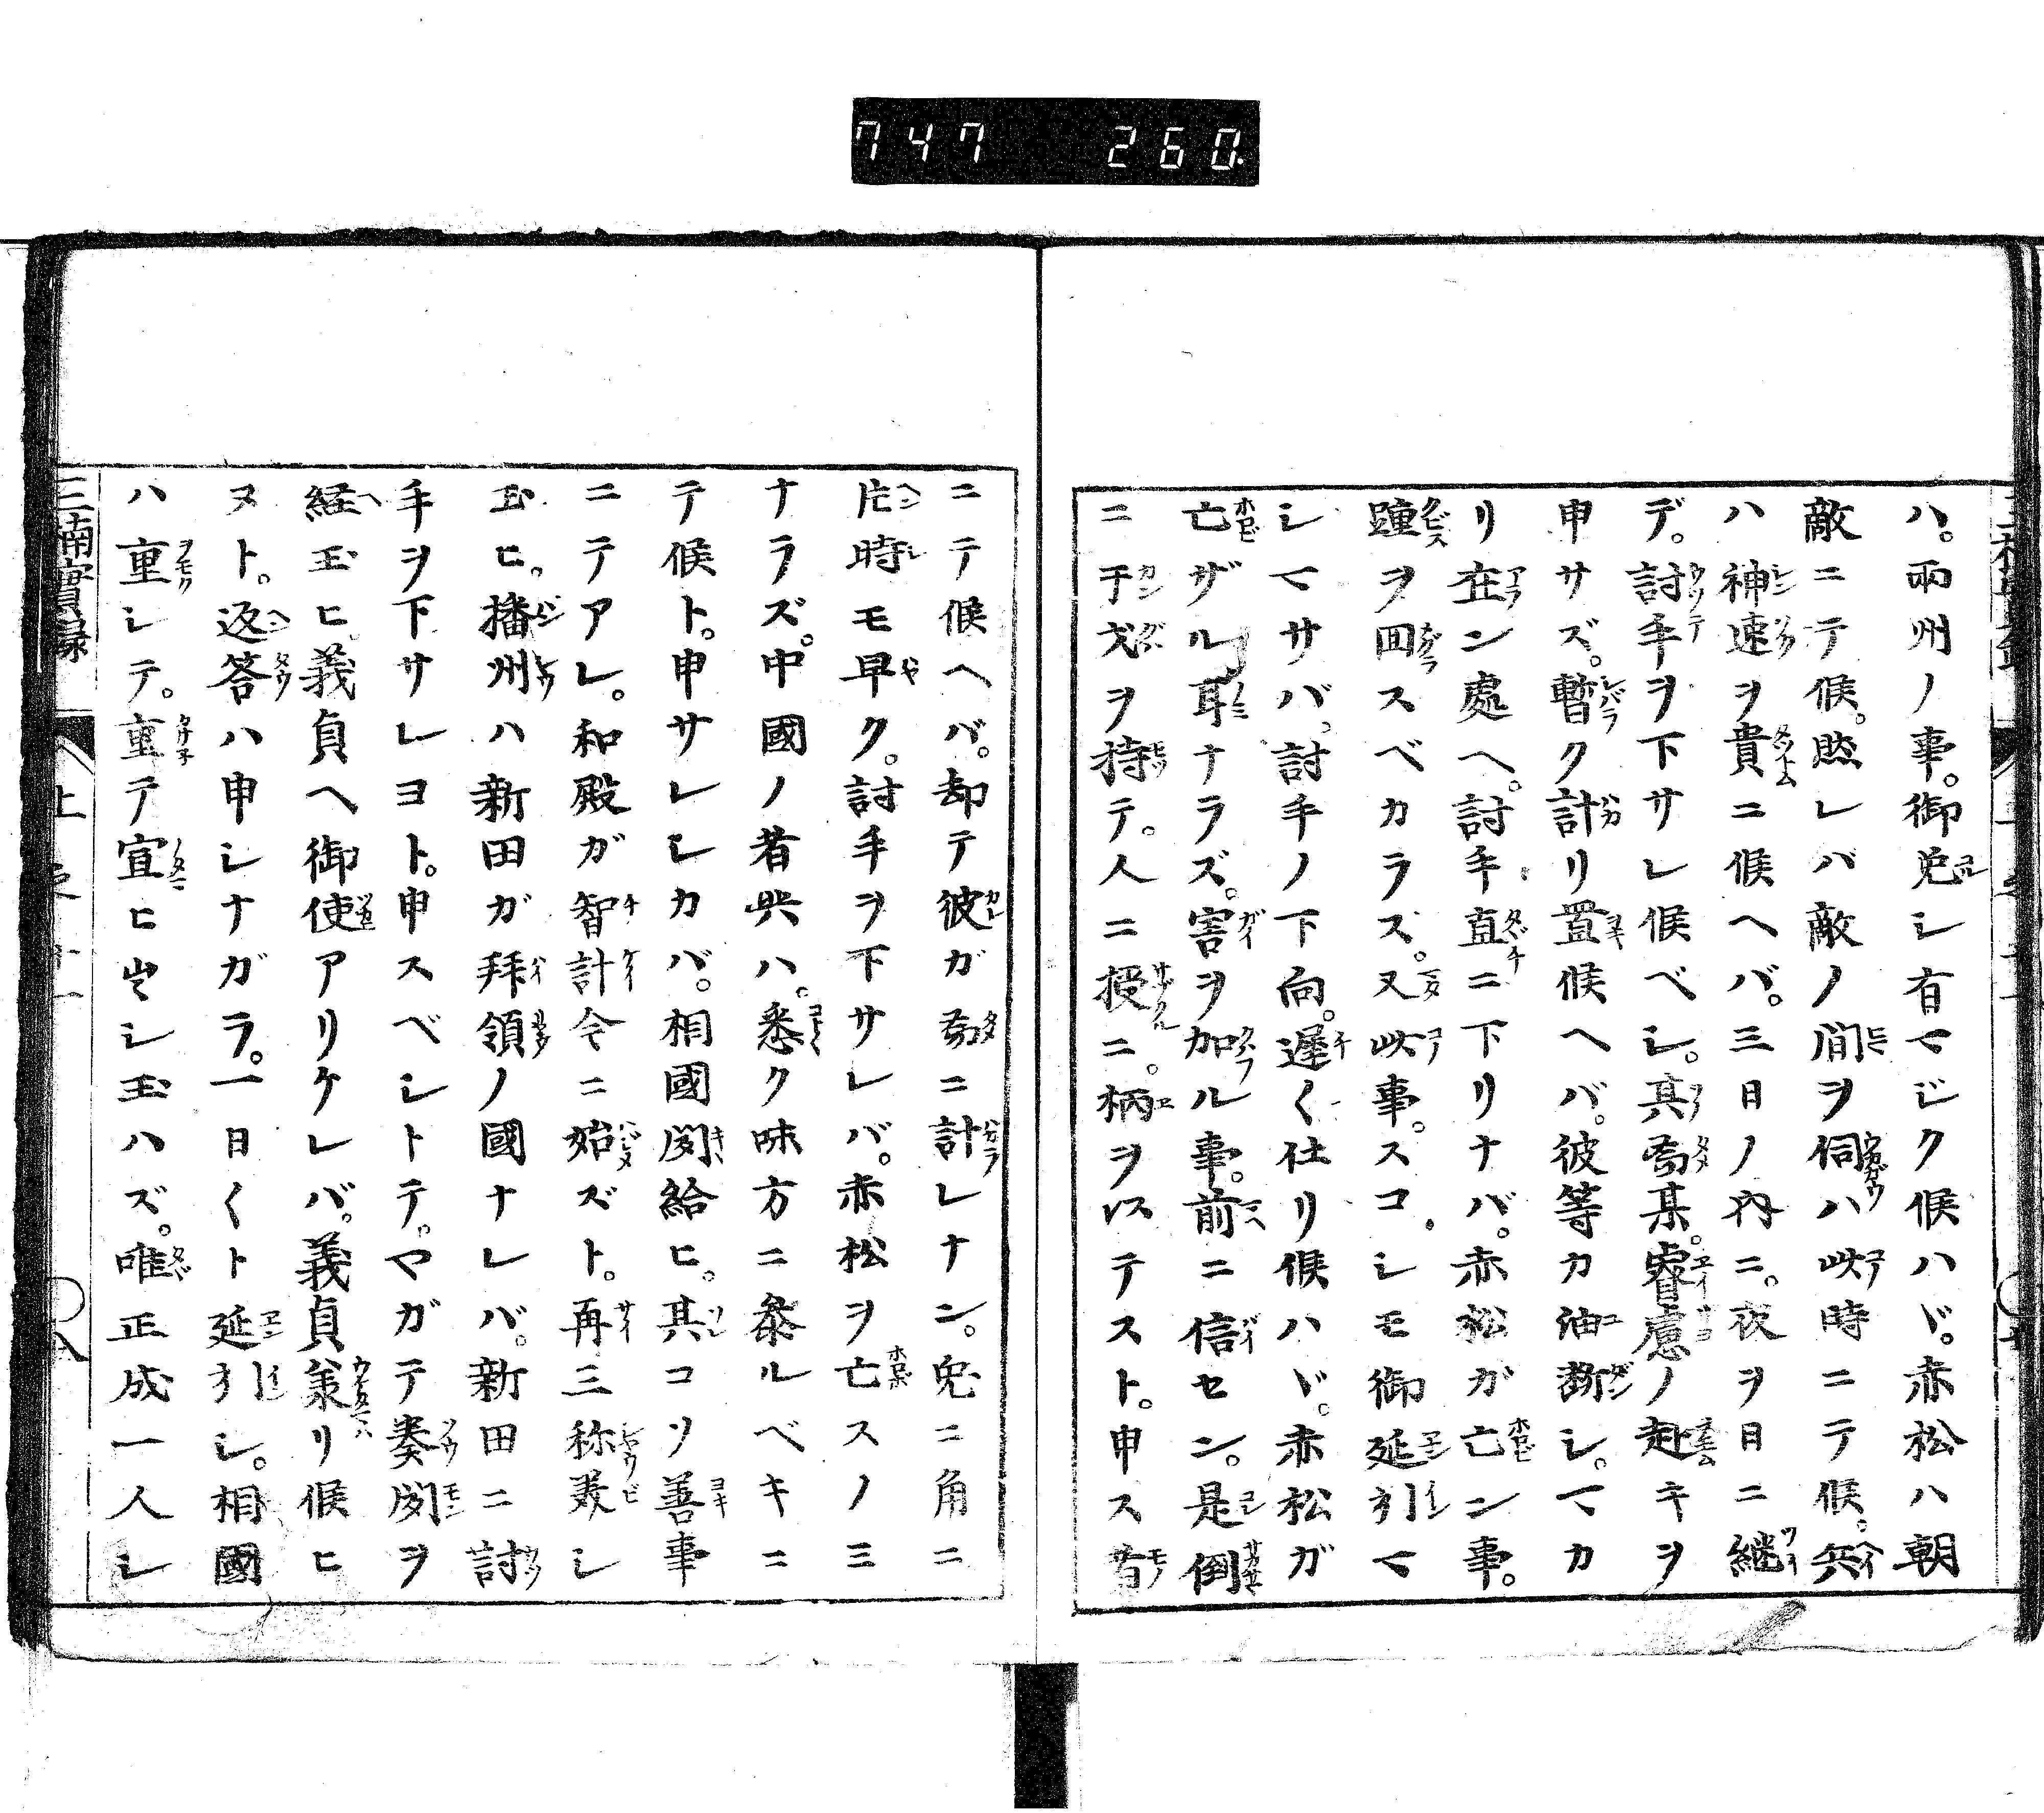 747 260
ハ。兩州ノ事。御免シ有マジク候ハヾ。赤松ハ朝
敵ニテ候。然レバ敵ノ間ヲ伺ハ此時ニテ候。兵
ハ神速ヲ貴ニ候ヘバ。三日ノ内ニ。夜ヲ日ニ継
デ。討手ヲ下サレ候ベシ。其爲某。睿慮ノ趣キヲ
申サズ。暫ク計リ置候ヘバ。彼等カ油断シ。マカ
リ在ン處ヘ。討手直ニ下リナバ。赤松ガ亡ン事。
踵ヲ囬スベカラズ。又此事。スコシモ御延引マ
シマサバ。討手ノ下向。遲く仕リ候ハヾ。赤松ガ
亡ザル耳ナラズ。害ヲ加ル事。前ニ信セン。是倒
ニ干戈ヲ持テ。人ニ授ニ。柄ヲ以テスト。申ス者
ニテ候ヘバ。却テ彼ガ爲ニ計レナン。兎ニ角ニ
片時モ早ク。討手ヲ下サレバ。赤松ヲ亡スノミ
ナラズ。中國ノ者共ハ。悉ク味方ニ参ルベキニ
テ候ト。申サレシカバ。相國聞給ヒ。其コソ善事
ニテアレ。和殿ガ智計今ニ始ズト。再三称美シ
玉ヒ。播州ハ新田ガ拜領ノ國ナレバ。新田ニ討
手ヲ下サレヨト。申スベシトテ。マガテ奏聞ヲ
経玉ヒ義貞ヘ御使アリケレバ。義貞兼リ候ヒ
ヌト。返答ハ申シナガラ。一日くト延引シ。相國
ハ重シテ。重テ宣ヒ出シ玉ハズ。唯正成一人シ
三楠實録 上之十一 〇八